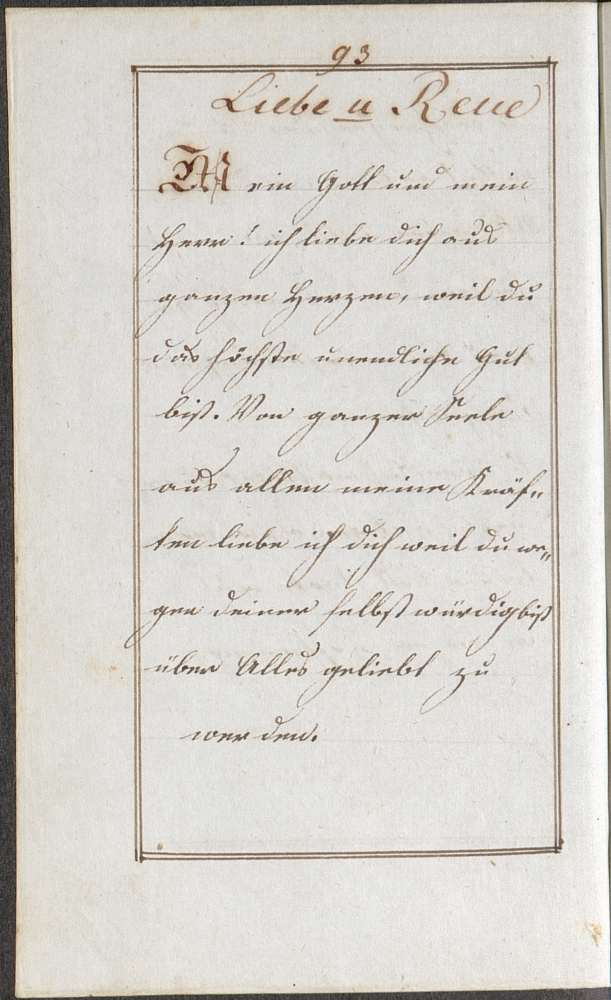 93
Liebe u Reue
Mein Gott und mein
Herr! ich liebe dich aus
ganzen Herzen, weil du
das höchste unendliche Gut
bist. Von ganzer Seele
aus allen meine Kräf„
ten liebe ich dich weil du we„
gen deiner selbst würdig bist
über Alles geliebt zu
werden.